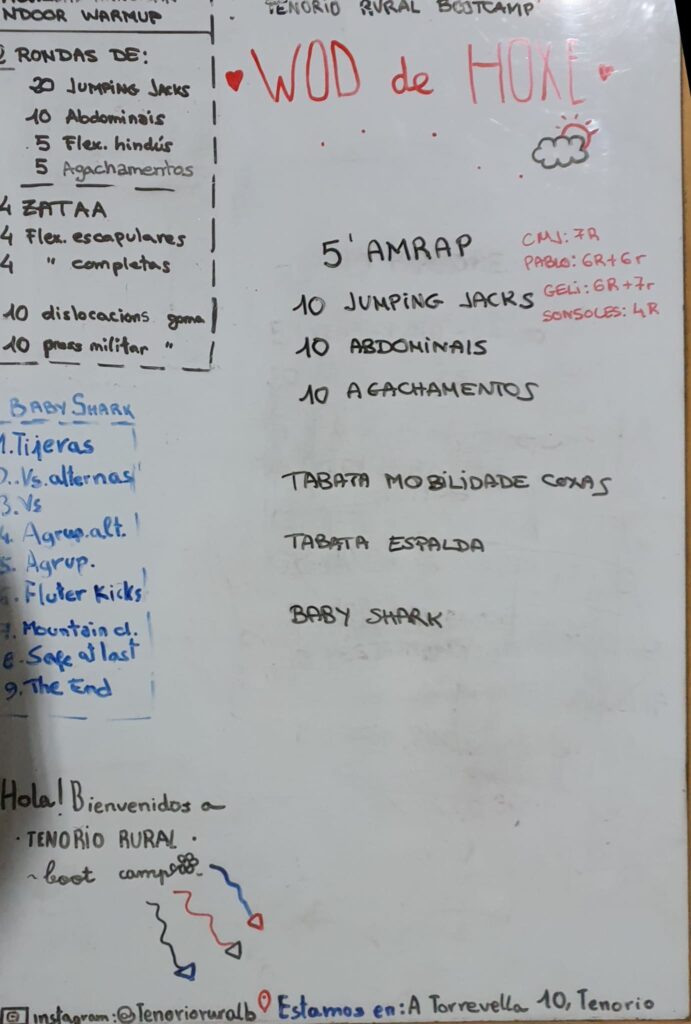 INDOOR WARMUP
2 RONDAS DE:
20 JUMPING JACKS
10 Abdominais
5 Flex. hindús
5 Agachamentos
4 ZATAA
4 Flex. escapulares
4 " completas
10 dislocacions goma
10 press militar "
BABY SHARK
1. Tijeras
2. Vs. alternas
3. Vs
4. Agrup. alt.
5. Agrup.
6. Fluter Kicks
7. Mountain cl.
8. Safe at last
9. The End
Hola! Bienvenidos a
· TENORIO RURAL ·
~ boot camp
TENORIO RURAL BOOTCAMP
WOD de HOXE
5' AMRAP
10 JUMPING JACKS
10 ABDOMINAIS
10 AGACHAMENTOS
CMJ: 7R
PABLO: 6R+6r
GELI: 6R+7r
SONSOLES: 4R
TABATA MOBILIDADE COXAS
TABATA ESPALDA
BABY SHARK
instagram: @Tenorioruralb Estamos en: A Torrevella 10, Tenorio